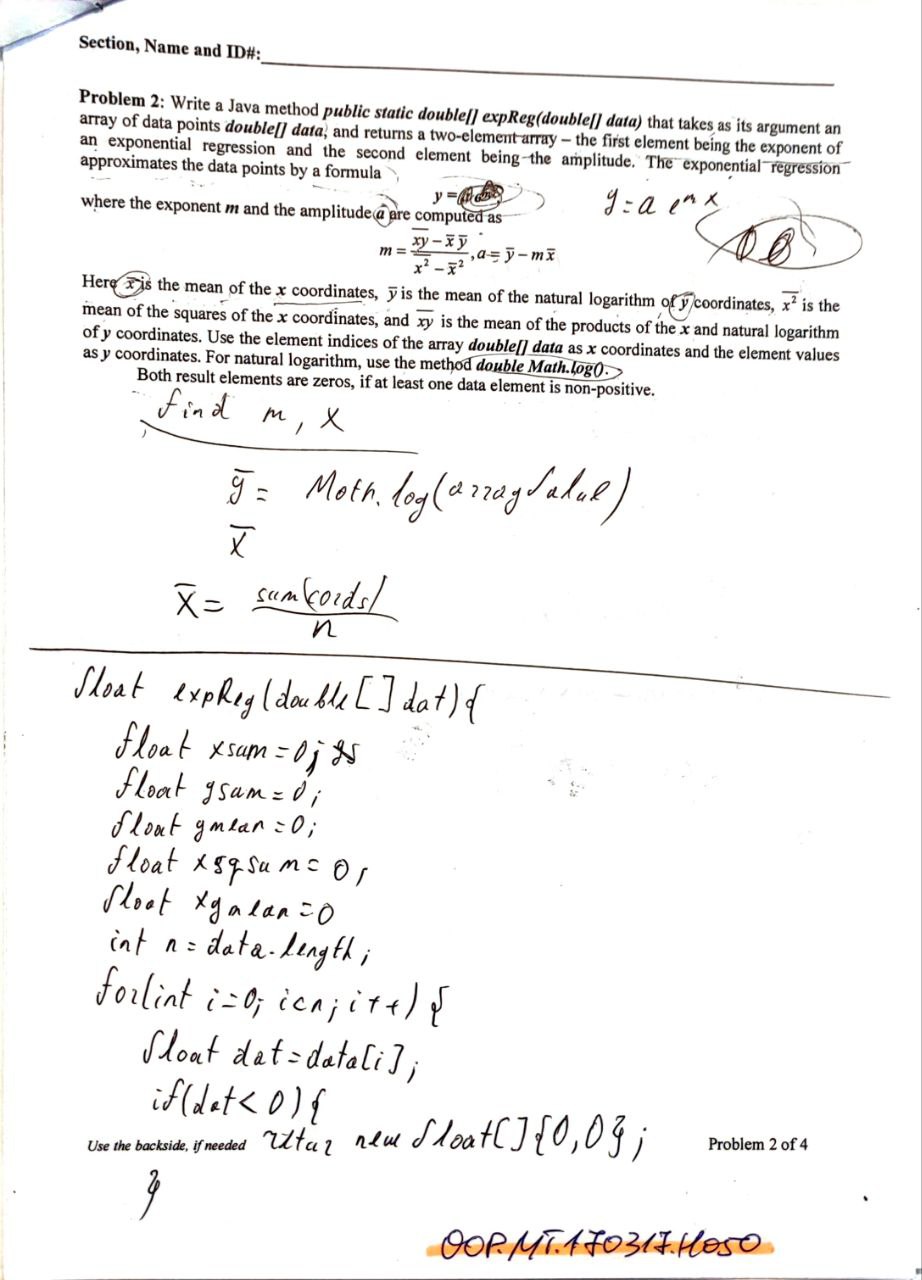 Section, Name and ID#:
Problem 2: Write a Java method public static double[] expReg(double[] data) that takes as its argument an
array of data points double[] data, and returns a two-element array – the first element being the exponent of
an exponential regression and the second element being the amplitude. The exponential regression
approximates the data points by a formula
y =
y = a e^mx
where the exponent m and the amplitude a are computed as
m = (x̅y̅ – x̄ ȳ) / (x̅²̅ – x̄²), a = ȳ – mx̄
Here x̄ is the mean of the x coordinates, ȳ is the mean of the natural logarithm of y coordinates, x̅²̅ is the
mean of the squares of the x coordinates, and x̅y̅ is the mean of the products of the x and natural logarithm
of y coordinates. Use the element indices of the array double[] data as x coordinates and the element values
as y coordinates. For natural logarithm, use the method double Math.log().
Both result elements are zeros, if at least one data element is non-positive.
find m, x
ȳ = Math.log(arrayValue)
x̄
x̄ = sum(cords) / n
float expReg(double[] dat){
float xsum = 0;
float ysum = 0;
float ymean = 0;
float xsqsum = 0;
float xymean = 0
int n = data.length;
for(int i=0; i<n; i++) {
float dat = data[i];
if(dat < 0) {
Use the backside, if needed
new float[]{0,0};
Problem 2 of 4
}
OOP.MT.170317.H050